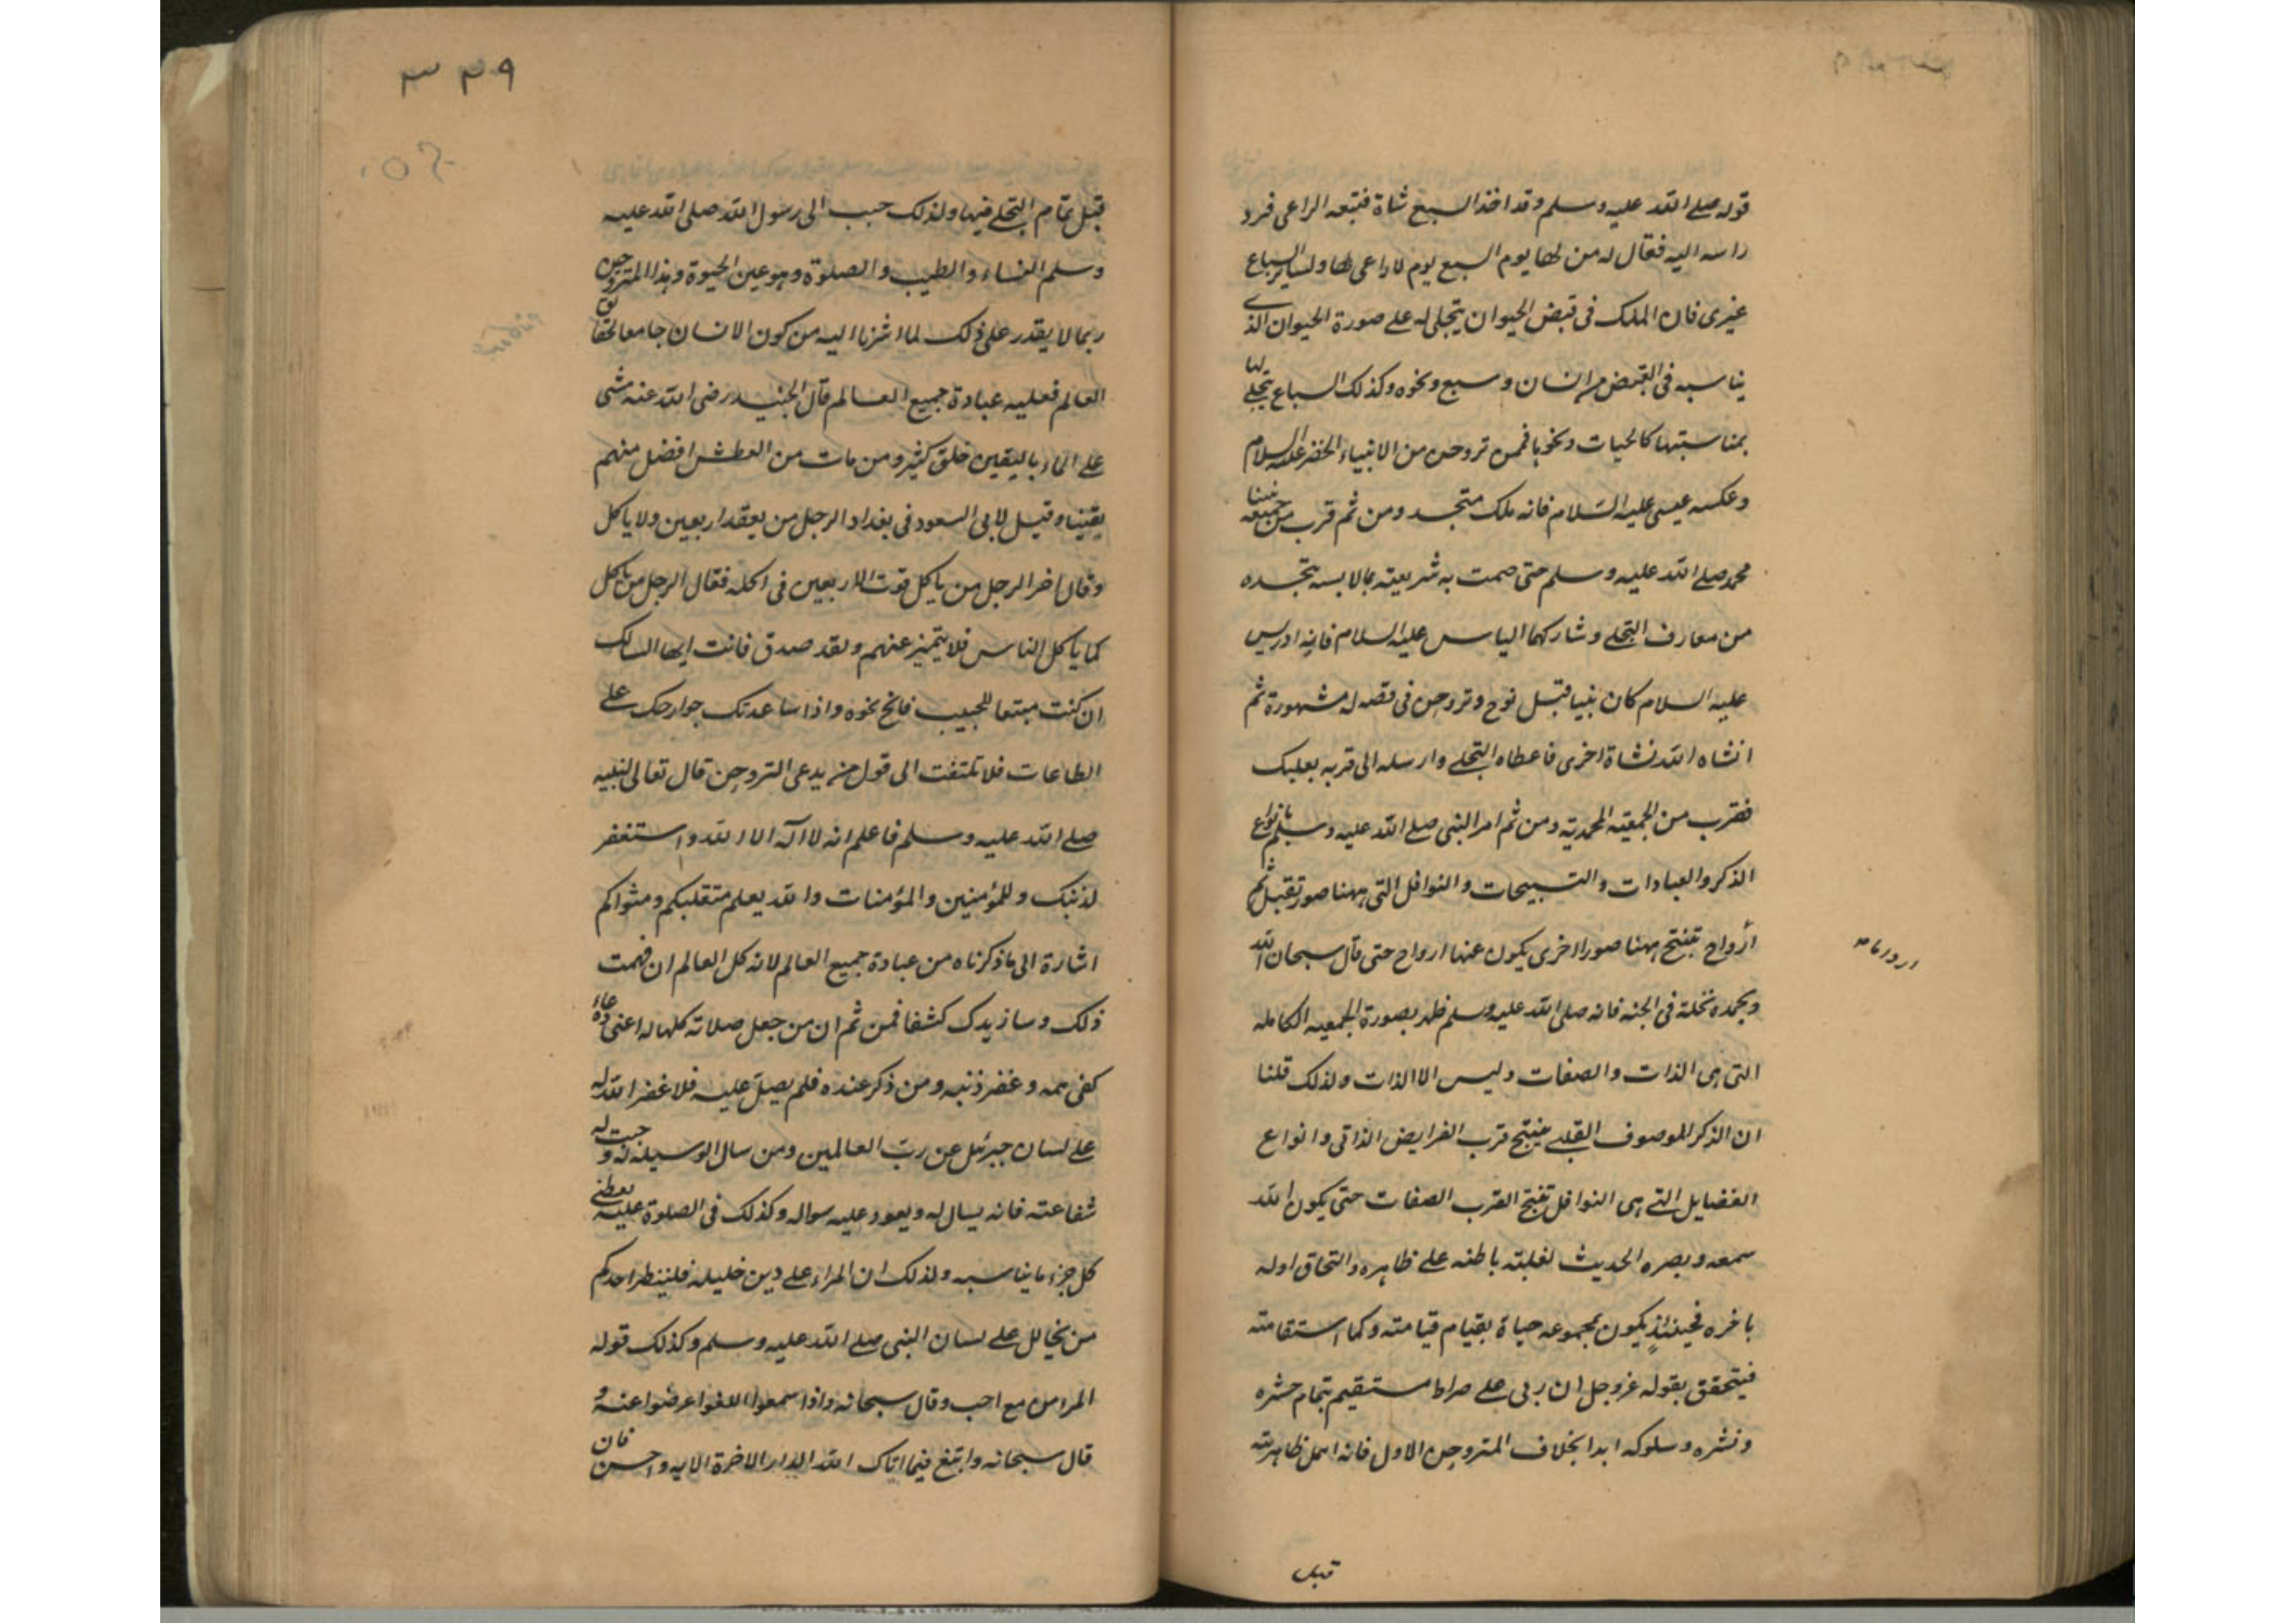 قوله صلے الله عليه وسلم وقد اخذ السبع شاة فتبعه الراعى فرد
راسه اليه فقال له من لها يوم السبع يوم لا راعى لها ولسائر السباع
غيرى فان الملك فى قبض الحيوان يتجلى له على صورة الحيوان الذى
يناسبه فى القبض من انسان وسبع ونحوه وكذلك السباع يتجلے لها
بمناسبتها كالحيات ونحوها فممن تروحن من الانبياء الخضر عليه السلام
وعكسه عيسى عليه السلام فانه ملك متجسد ومن ثم قرب من جمعية نبينا
محمد صلے الله عليه وسلم حتى صمت به شريعته بما لابسه تجسده
من معارف التجلے وشاركهما الياس عليه السلام فانه ادريس
عليه السلام كان نبيا قبل نوح وتروحن فى قصه له مشهورة ثم
انشاه الله نشاة اخرى فاعطاه التجلے وارسله الى قريه بعلبك
فقرب من الجمعية المحمدية ومن ثم امر النبى صلے الله عليه وسلم بانواع
الذكر والعبادات والتسبيحات والنوافل التى ههنا صور تقبل ثم
أرواح تفتح ههنا صورا اخرى يكون عنها ارواح حتى قال سبحان الله
وبحمده نخلة فى الجنه فانه صلى الله عليه وسلم ظهر بصورة الجمعيه الكامله
التى هى الذات والصفات وليس الا الذات ولذلك قلنا
ان الذكر الموصوف القلبے ينتج قرب الفرايض الذاتى وانواع
الفضايل التے هى النوافل تنتج القرب الصفات حتى يكون الله
سمعه وبصره الحديث لغلبته باطنه على ظاهره والتحاق اوله
باخره فحينئذٍ يكون مجموعه حياة بقيام قيامته وكما استقامته
فيتحقق بقوله عز وجل ان ربى على صراط مستقيم بتمام حشره
ونشره وسلوكه ابدا بخلاف المتروحن الاول فانه اهمل ظاهريته
قبل
٣٣٩
قبل تمام التجلے فيها ولذلك حبب الى رسول الله صلى الله عليه
وسلم النساء والطيب والصلوة وهو عين الحيوة وهذا المتروحن
ربما لا يقدر على ذلك لما اشرنا اليه من كون الانسان جامعا لحقايق
العالم فعليه عبادة جميع العالم قال الجنيد رضى الله عنه مشى
على الماء باليقين خلق كثير ومن مات من العطش افضل منهم
يقينا وقيل لابى السعود فى بغداد الرجل من يعقد اربعين ولا ياكل
وقال اخر الرجل من ياكل قوت الاربعين فى اكله فقال الرجل من ياكل
كما ياكل الناس فلا يتميز عنهم ولقد صدق فانت ايها السالك
ان كنت متبعا للحبيب فانح نحوه واذا ساعدتك جوارحك على
الطاعات فلا تلتفت الى قول من يدعى التروحن قال تعالى لنبيه
صلے الله عليه وسلم فاعلم انه لا اله الا الله واستغفر
لذنبك وللمؤمنين والمؤمنات والله يعلم متقلبكم ومثواكم
اشارة الى ما ذكرناه من عبادة جميع العالم لانه كل العالم ان فهمت
ذلك وسازيدك كشفا فمن ثم ان من جعل صلاته كلها له اعنى دعاءه
كفى همه وغفر ذنبه ومن ذكر عنده فلم يصل عليه فلا غفر الله له
على لسان جبرئيل عن رب العالمين ومن سال الوسيلة له وجبت له
شفاعته فانه يسال له ويعود عليه سواله وكذلك فى الصلوة عليه يعطى
كل جزء ما يناسبه ولذلك ان المراء على دين خليله فلينظر احدكم
من يخالل على لسان النبى صلے الله عليه وسلم وكذلك قوله
المرء من مع احب وقال سبحانه واذا سمعوا اللغو اعرضوا عنه و
قال سبحانه وابتغ فيما اتاك الله الدار الاخرة الايه واحسن فان